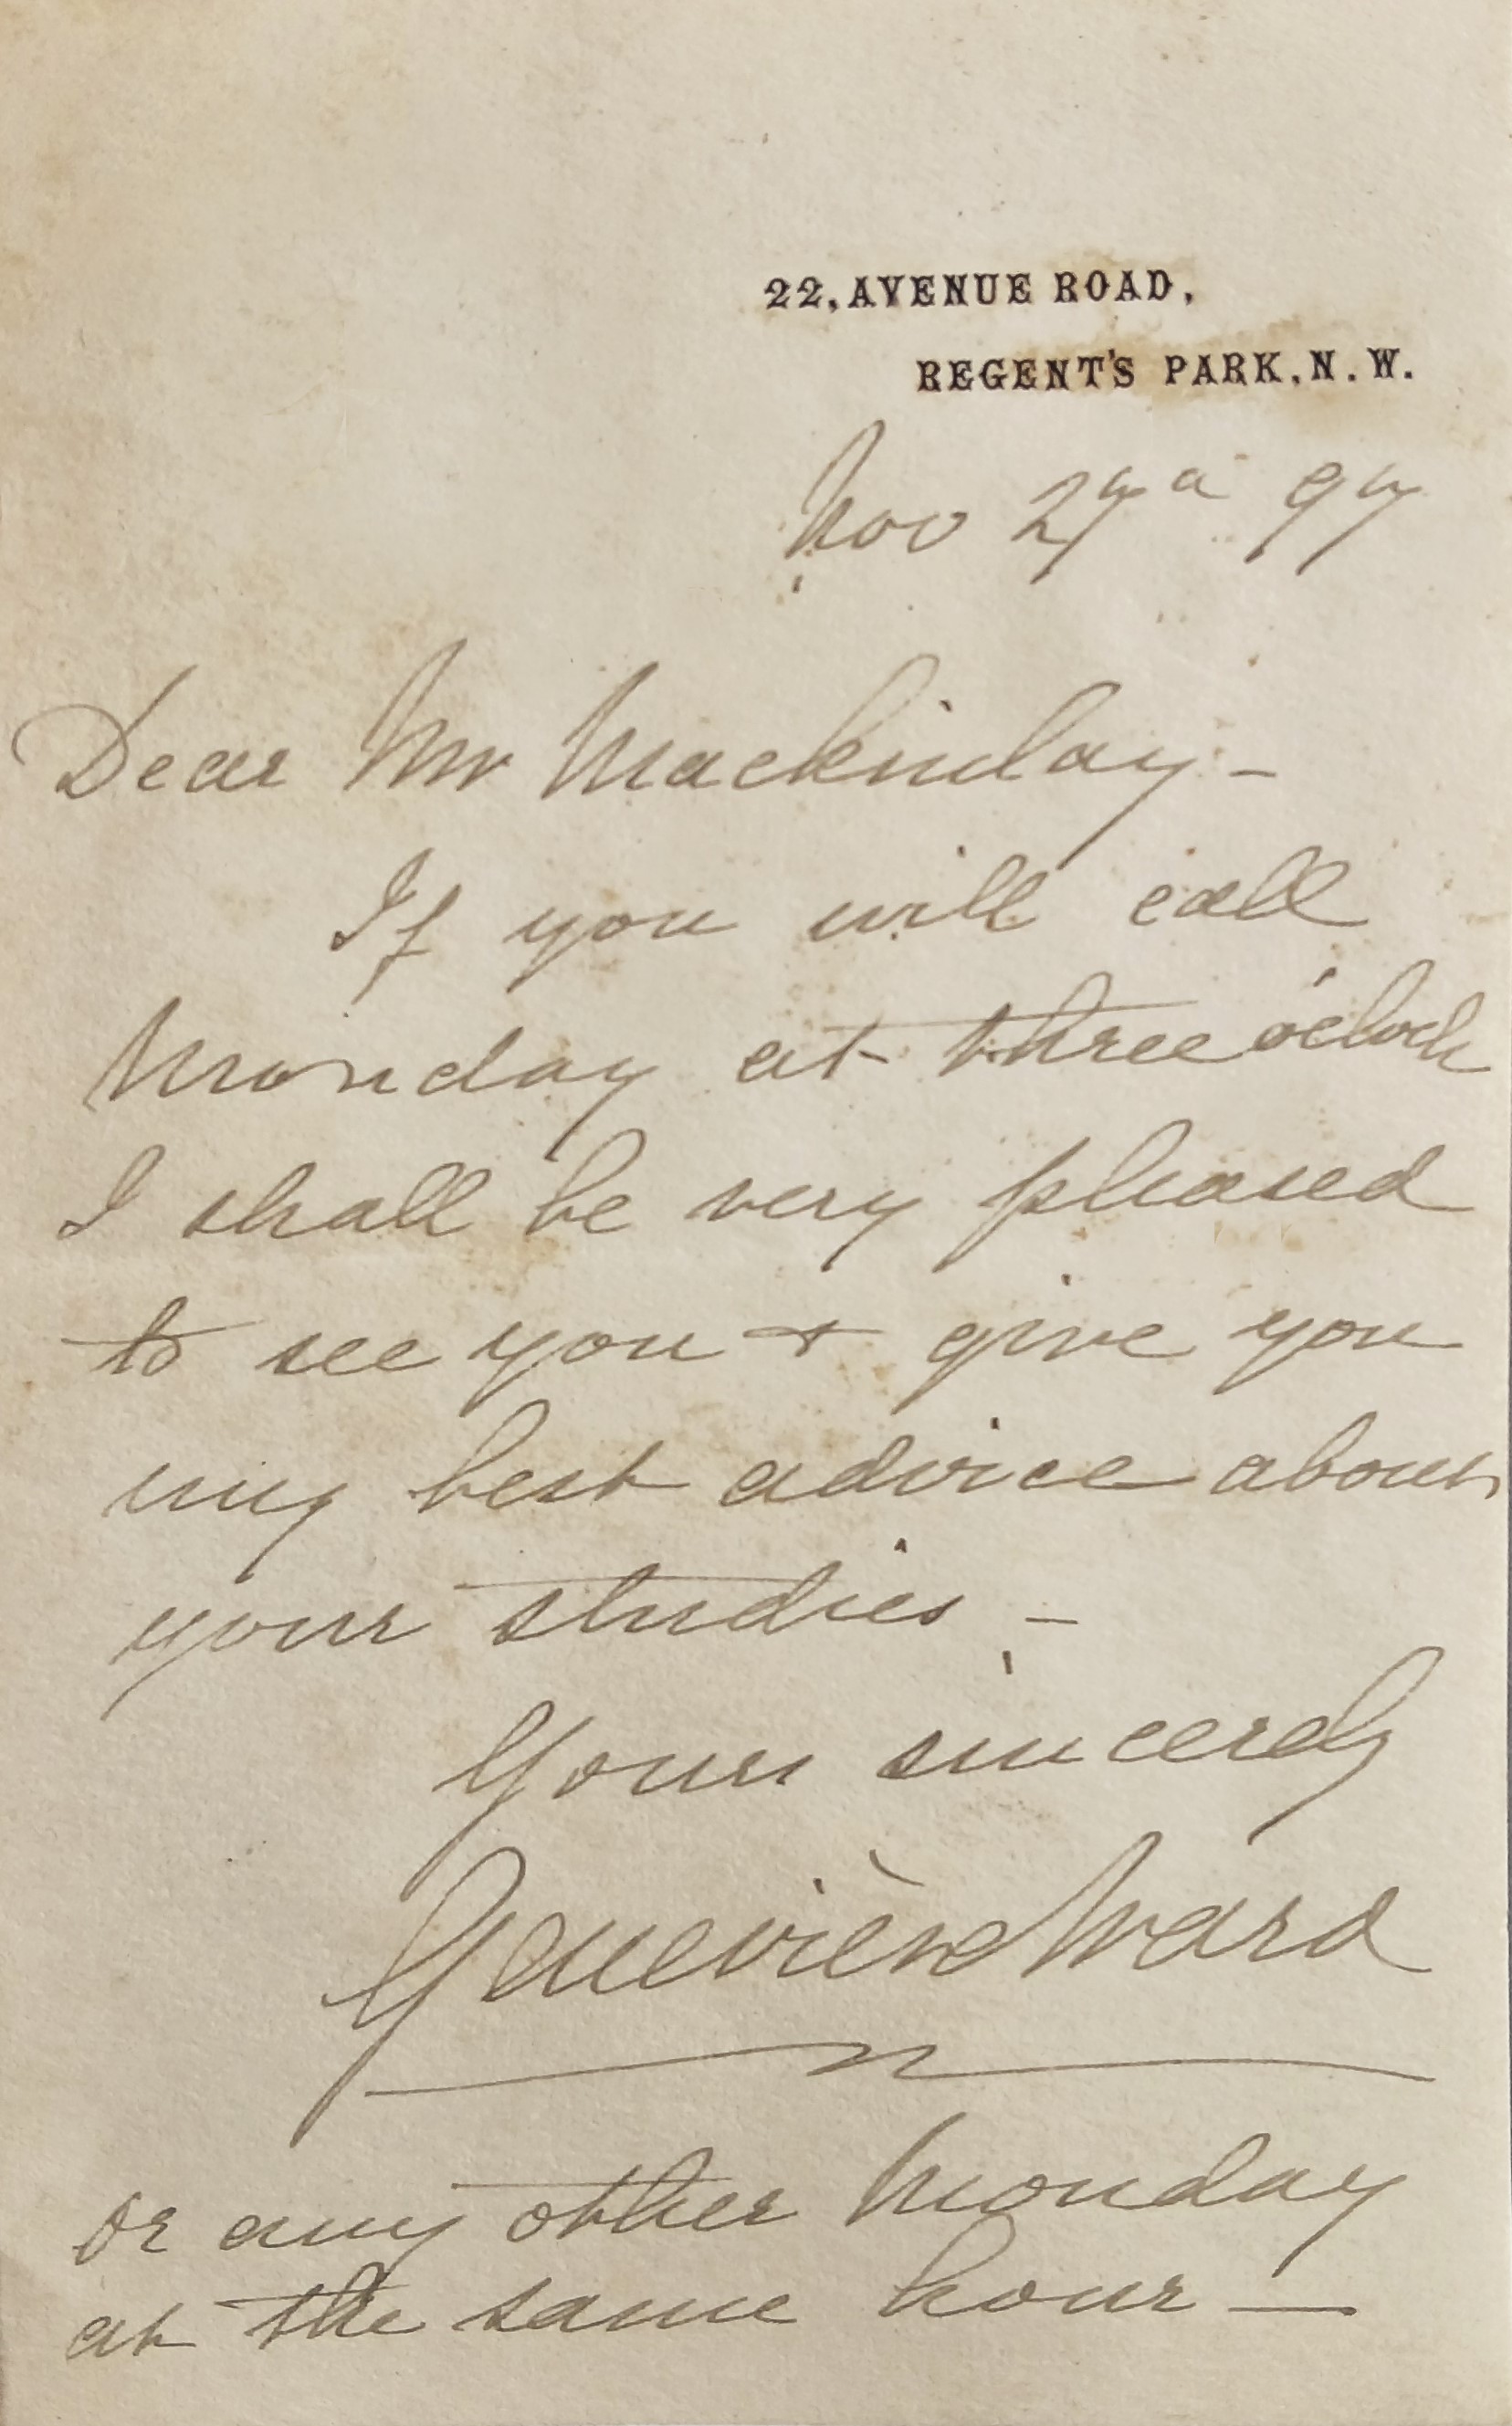 22, AVENUE ROAD,
REGENT'S PARK, N. W.
Nov 27 97
Dear Mr Mackinlay -
If you will call
Monday at three o'clock
I shall be very pleased
to see you + give you
my best advice about
your studies -
Yours sincerely
Geneviève Ward
or any other Monday
at the same hour —